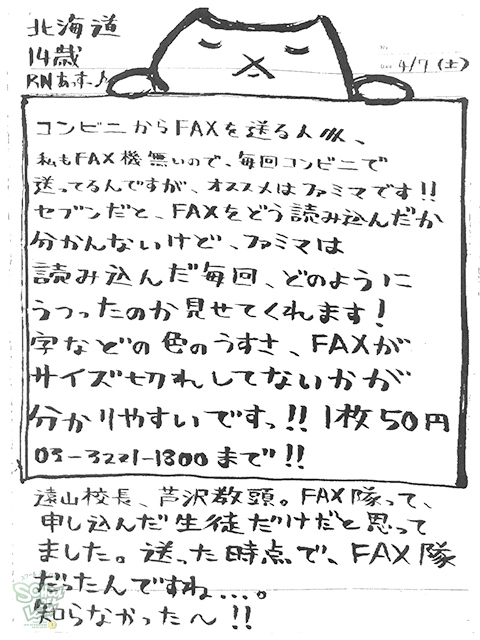 北海道
14歳
RNあっきー♪
4/7(土)
コンビニからFAXを送る人へ、
私もFAX機無いので、毎回コンビニで
送ってるんですが、オススメはファミマです!!
セブンだと、FAXをどう読み込んだか
分かんないけど、ファミマは
読み込んだ毎回、どのように
うつったのか見せてくれます!
字などの色のうすさ、FAXが
サイズ切れしてないかが
分かりやすいですっ!! 1枚50円
03-3221-1800まで!!
遠山校長、芦沢教頭。FAX隊って、
申し込んだ生徒だけだと思って
ました。送った時点で、FAX隊
だったんですね…。
知らなかった〜!!